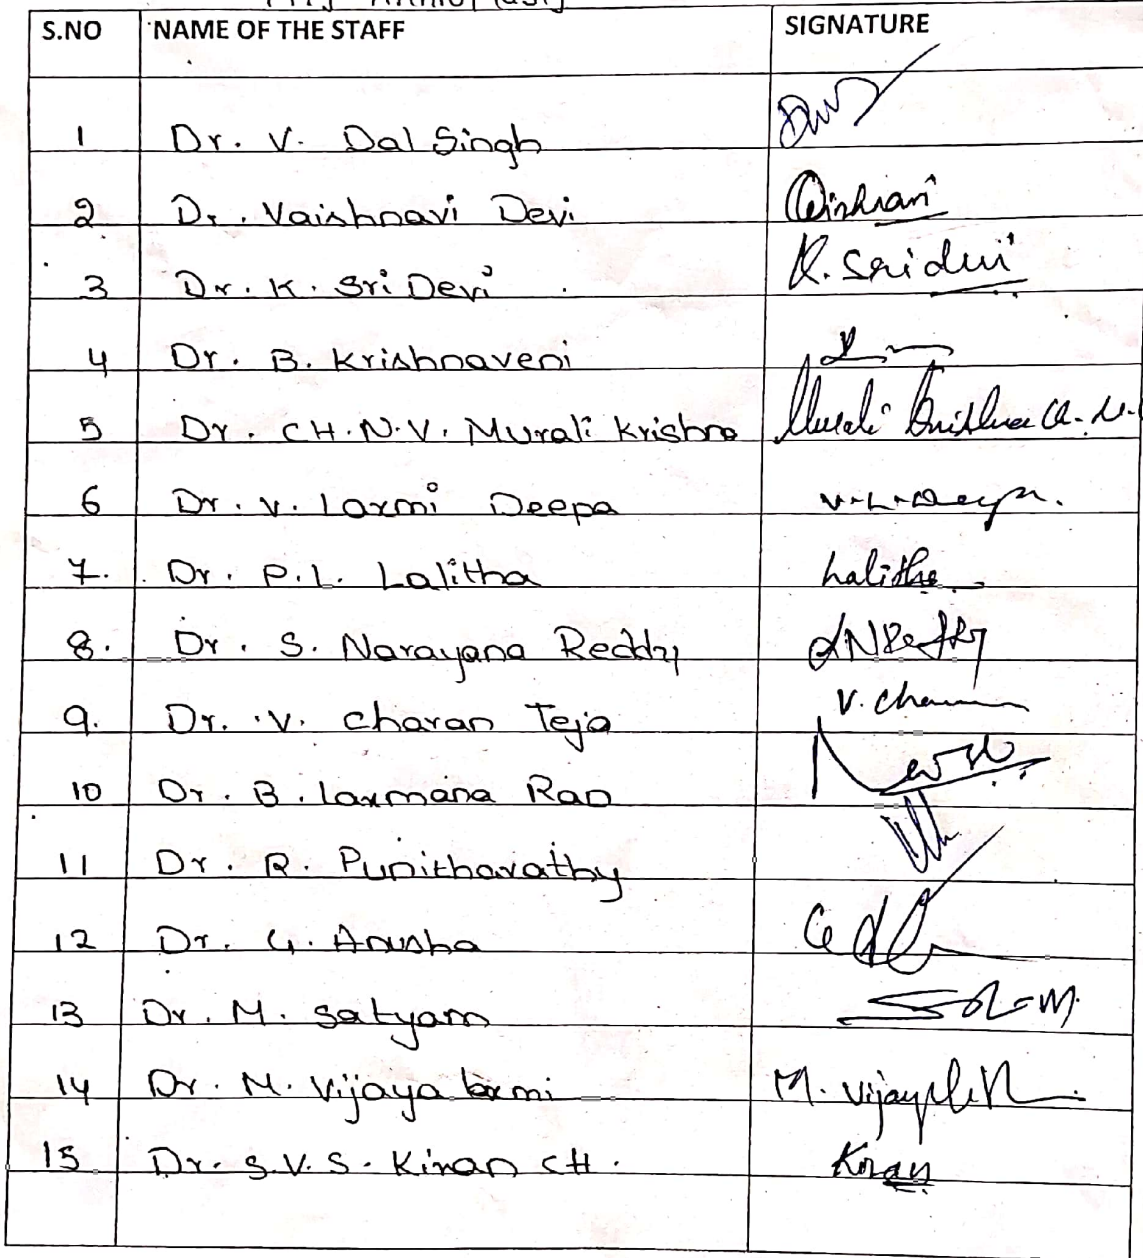 S.NO NAME OF THE STAFF SIGNATURE
1 Dr. V. Dal Singh
2 Dr. Vaishnavi Devi
3 Dr. K. Sri Devi K. Sridevi
4 Dr. B. Krishnaveni
5 Dr. CH.N.V. Murali Krishna Murali Krishna Ch. N.
6 Dr. V. Laxmi Deepa V.L.Deepa.
7. Dr. P.L. Lalitha Lalitha
8. Dr. S. Narayana Reddy SNReddy
9. Dr. V. Charan Teja V. Charan
10 Dr. B. Laxmana Rao
11 Dr. R. Punithavathy
12 Dr. G. Anusha
13 Dr. M. Satyam
14 Dr. M. Vijaya laxmi M. Vijaya
15 Dr. S.V.S. Kiran CH. Kiran